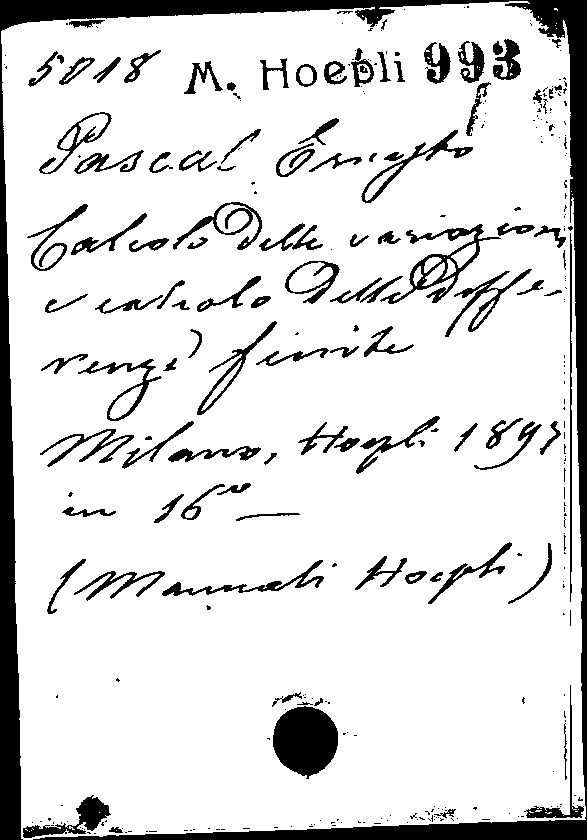 5018 M. Hoepli 993
Pascal Ernesto
Calcolo delle variazioni
e calcolo delle diffe-
renze finite
Milano, Hoepli 1897
in 16º —
(Manuali Hoepli)